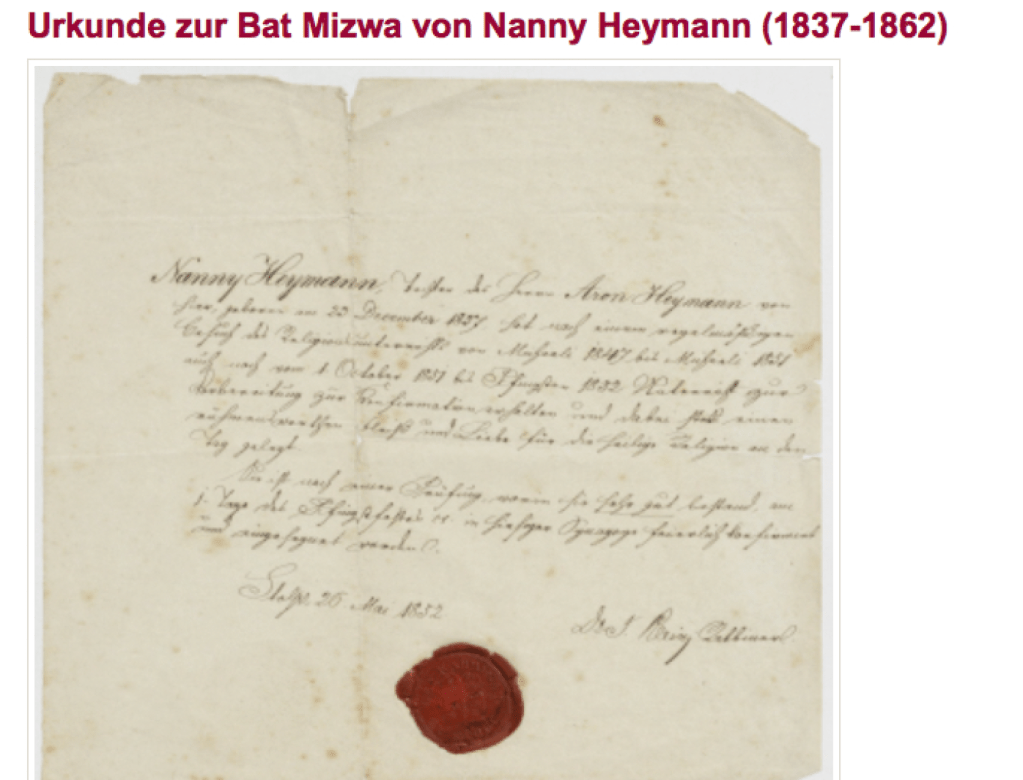 Urkunde zur Bat Mizwa von Nanny Heymann (1837-1862)
Nanny Heymann, Tochter des Herrn Aron Heymann von
hier, geboren am 23 December 1837 hat nach einem regelmäßigen
Besuch des Religionsunterrichts von Michaeli 1847 bis Michaeli 1851
auch noch vom 1 October 1851 bis Pfingsten 1852 Unterricht zur
Vorbereitung zur Confirmation erhalten und dabei stets einen
rühmenswerthen Fleiß und Liebe für die heilige Religion an den
Tag gelegt.
Sie ist nach einer Prüfung, worin sie sehr gut bestand, am
1. Tage des Pfingstfestes in hiesiger Synagoge feierlich confirmirt
und eingesegnet worden.
Stolp, 26 Mai 1852
Dr J.